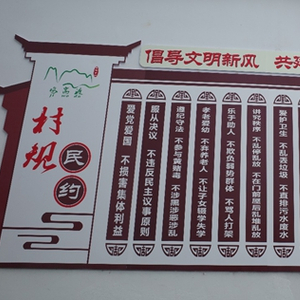 倡导文明新风 共
村规民约
爱党爱国 不损害集体利益
服从决议 不违反民主议事原则
遵纪守法 不参与黄赌毒 不涉黑涉恶涉乱
孝老爱幼 不弃养老人 不让子女辍学失学
乐于助人 不欺负弱势群体 不骂人打架
讲究秩序 不乱停乱放 不在门前屋后乱堆乱放
爱护卫生 不乱丢垃圾 不直排污水废水